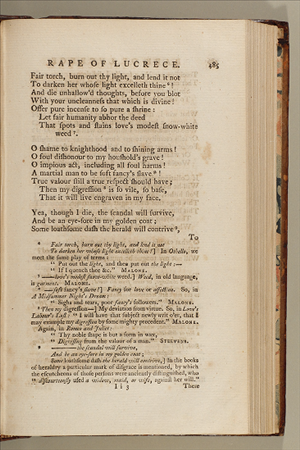 RAPE OF LUCRECE. 485
Fair torch, burn out thy light, and lend it not
To darken her whose light excelleth thine ⁸!
And die unhallow'd thoughts, before you blot
With your uncleanness that which is divine!
Offer pure incense to so pure a shrine:
Let fair humanity abhor the deed
That spots and stains love's modest snow-white
weed ⁹.
O shame to knighthood and to shining arms!
O foul dishonour to my houshold's grave!
O impious act, including all foul harms!
A martial man to be soft fancy's slave ¹!
True valour still a true respect should have;
Then my digression ² is so vile, so base,
That it will live engraven in my face.
Yea, though I die, the scandal will survive,
And be an eye-sore in my golden coat;
Some loathsome dash the herald will contrive ³,
To
Fair torch, burn out thy light, and lend it not
To darken her whose light excelleth thine!] In Othello, we
meet the same play of terms:
"Put out the light, and then put out the light:—
"If I quench thee &c." MALONE.
—love's modest snow-white weed.] Weed, in old language,
is garment. MALONE.
—soft fancy's slave!] Fancy for love or affection. So, in
A Midsummer Night's Dream:
"Sighs and tears, poor fancy's followers." MALONE.
² Then my digression—] My deviation from virtue. So, in Love's
Labour's Lost: "I will have that subject newly writ o'er, that I
may example my digression by some mighty precedent." MALONE.
Again, in Romeo and Juliet:
"Thy noble shape is but a form in wax,
"Digressing from the valour of a man." STEEVENS.
³ —the scandal will survive,
And be an eye-sore in my golden coat;
Some loathsome dash the herald will contrive,] In the books
of heraldry a particular mark of disgrace is mentioned, by which
the escutcheons of those persons were anciently distinguished, who
"discourteously used a widow, maid, or wife, against her will."
I i 3 There